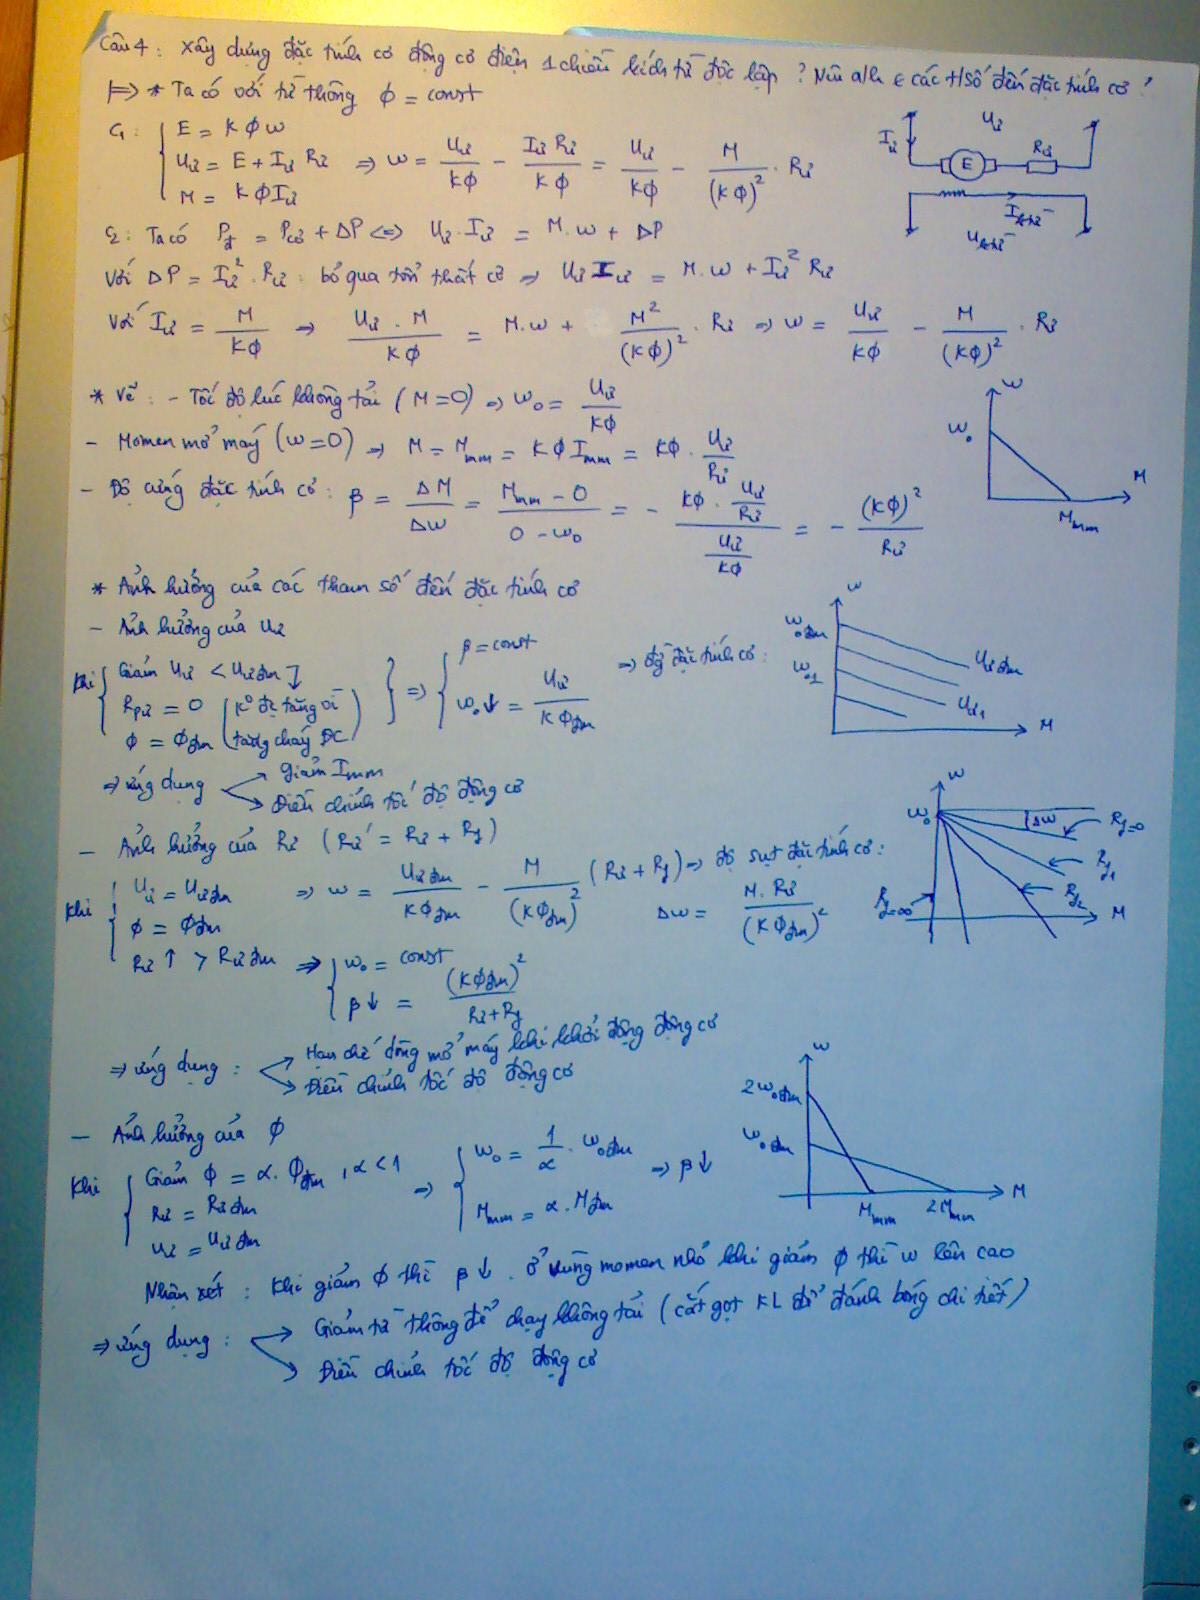 Câu 4: Xây dựng đặc tính cơ động cơ điện 1 chiều kích từ độc lập ? Nêu a/h € các t/số đến đặc tính cơ ?
|=> * Ta có với từ thông ϕ = const
C1: { E = KϕW
Uư = E + Iư Rư => W = Uư/Kϕ - Iư Rư/Kϕ = Uư/Kϕ - M/(Kϕ)² . Rư
M = KϕIư
Uư
Iư
E
Rư
Ikt
Ukt
C2: Ta có Pđ = Pcơ + ΔP <=> Uư.Iư = M.W + ΔP
Với ΔP = Iư².Rư: bỏ qua tổn thất cơ => Uư Iư = M.W + Iư² Rư
Với Iư = M/Kϕ => Uư.M/Kϕ = M.W + M²/(Kϕ)² . Rư => W = Uư/Kϕ - M/(Kϕ)² . Rư
* Vẽ: - Tốc độ lúc không tải (M=0) => W0 = Uư/Kϕ
- Momen mở máy (W=0) => M = Mmm = KϕImm = Kϕ . Uư/Rư
- Độ cứng đặc tính cơ: β = ΔM/ΔW = (Mmm - 0)/(0 - W0) = - (Kϕ . Uư/Rư)/(Uư/Kϕ) = - (Kϕ)²/Rư
W
W0
M
Mmm
* Ảnh hưởng của các tham số đến đặc tính cơ
- Ảnh hưởng của Uư
Khi { Giảm Uư < Uưđm
Rpư = 0 (K° đc tăng vì
ϕ = ϕđm từng chạy ĐC)
} => { β = const
W0↓ = Uư/Kϕđm
=> đg đặc tính cơ:
W
W0đm
W01
Uưđm
Uư1
M
=> ứng dụng
Giảm Imm
Điều chỉnh tốc độ động cơ
- Ảnh hưởng của Rư (Rư' = Rư + Rf)
Khi { Uư = Uưđm
ϕ = ϕđm
Rư ↑ > Rưđm
=> W = Uưđm/Kϕđm - M/(Kϕđm)² (Rư + Rf) => độ sụt đặc tính cơ:
ΔW = M.Rư/(Kϕđm)²
=> { W0 = const
β↓ = (Kϕđm)²/Rư+Rf
W
W0
ΔW
Rf=0
Rf1
Rf2
Rf=∞
M
=> ứng dụng:
Hạn chế dòng mở máy khi khởi động động cơ
Điều chỉnh tốc độ động cơ
- Ảnh hưởng của ϕ
Khi { Giảm ϕ = α.ϕđm, α<1
Rư = Rưđm
Uư = Uưđm
=> { W0 = 1/α . W0đm
Mmm = α.Mđm
=> β↓
W
2W0đm
W0đm
Mmm
2Mmm
M
Nhận xét: Khi giảm ϕ thì β↓. Ở vùng momen nhỏ khi giảm ϕ thì W lên cao
=> ứng dụng:
Giảm từ thông để chạy không tải (cắt gọt KL để đánh bóng chi tiết)
Điều chỉnh tốc độ động cơ